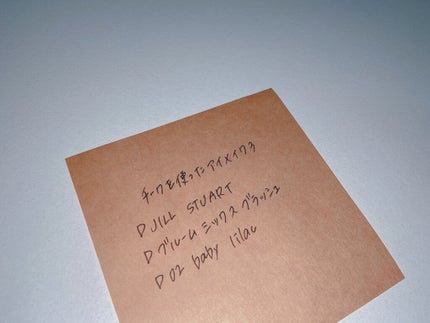 チークを使ったアイメイク3
D JILL STUART
D ブルームミックスブラッシュ
D 02 baby lilac